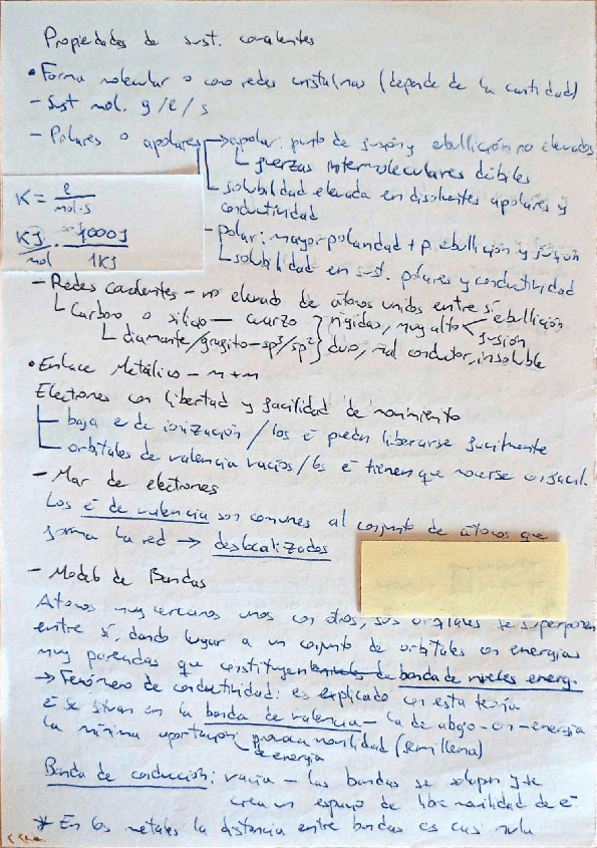 Propiedades de sust. covalentes
• Forma molecular o como redes cristalinas (depende de la cantidad)
- Sust mol. g/l/s
- Polares o apolares → apolar: punto de fusión y ebullición no elevados
fuerzas intermoleculares débiles
solubilidad elevada en disolventes apolares y
conductividad
K = l / mol·s
KJ / mol · 1000J / 1KJ
- polar: mayor polaridad + p. ebullición y fusión
solubilidad en sust. polares y conductividad
- Redes covalentes - no elevado de átomos unidos entre sí
Carbono o silicio - cuarzo } rígidas, muy alto < ebullición fusión
diamante/grafito - sp³/sp² } duro, mal conductor, insoluble
• Enlace Metálico - m + m
Electrones con libertad y facilidad de movimiento
baja e de ionización / los e⁻ pueden liberarse facilmente
orbitales de valencia vacíos / los e⁻ tienen que moverse facil.
- Mar de electrones
Los e⁻ de valencia son comunes al conjunto de átomos que
forma la red → deslocalizados
- Modelo de Bandas
Atomos muy cercanos unos con otros, sus orbitales se superponen
entre sí, dando lugar a un conjunto de orbitales con energías
muy parecidas que constituyen banda de niveles energ.
→ Fenómeno de conductividad: es explicado con esta teoría
e⁻ se sitúan en la banda de valencia - la de abajo - con - energía
la mínima aportación de energía provoca movilidad (semillena)
Banda de conducción: vacía - las bandas se solapan y se
crea un espacio de libre movilidad de e⁻
* En los metales la distancia entre bandas es casi nula